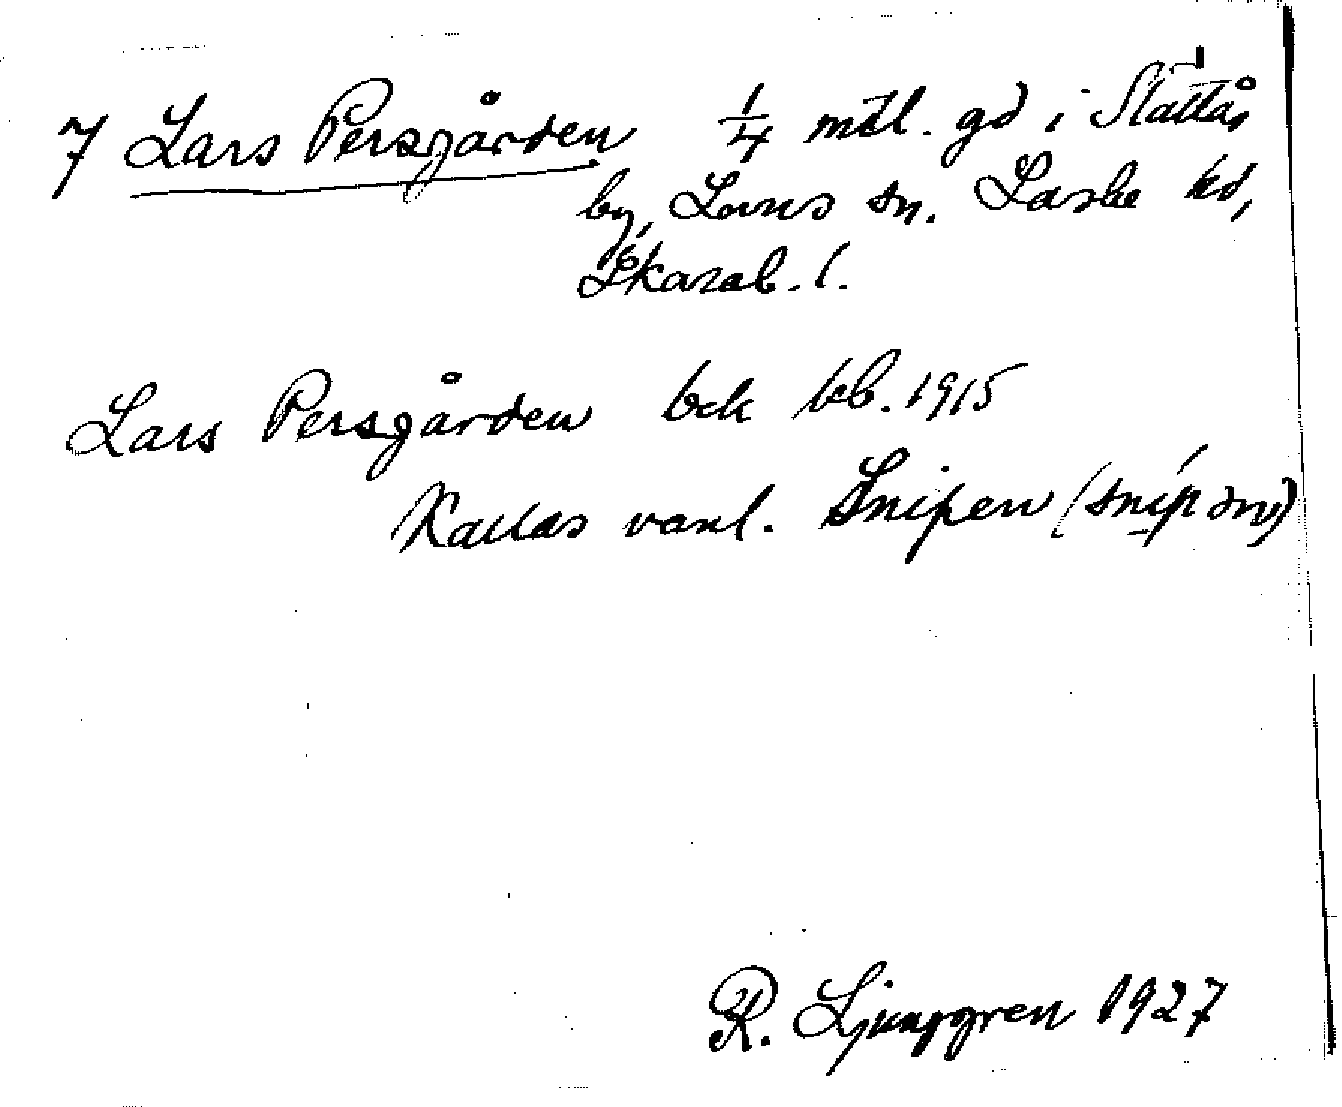 7 Lars Persgården 1/4 mtl. gd i Slättås
by, Lavs sn. Laske hd,
Skarab. l.
Lars Persgården bek kb. 1915
Kallas vanl. Snipen (snípən)
R. Ljunggren 1927